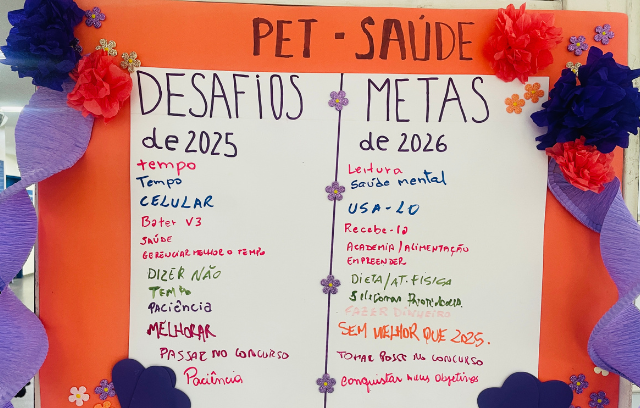 PET - SAÚDE
DESAFIOS
de 2025
tempo
Tempo
CELULAR
Bater V3
SAÚDE
GERENCIAR MELHOR O TEMPO
DIZER NÃO
TEMPO
PACIÊNCIA
MELHORAR
PASSAR NO CONCURSO
Paciência
METAS
de 2026
Leitura
Saúde mental
USA-LO
Recebe-la
ACADEMIA/ALIMENTAÇÃO
EMPREENDER
DIETA/AT. FÍSICA
FAZER DINHEIRO
SEM MELHOR QUE 2025.
TOMAR POSSE NO CONCURSO
conquistar meus objetivos